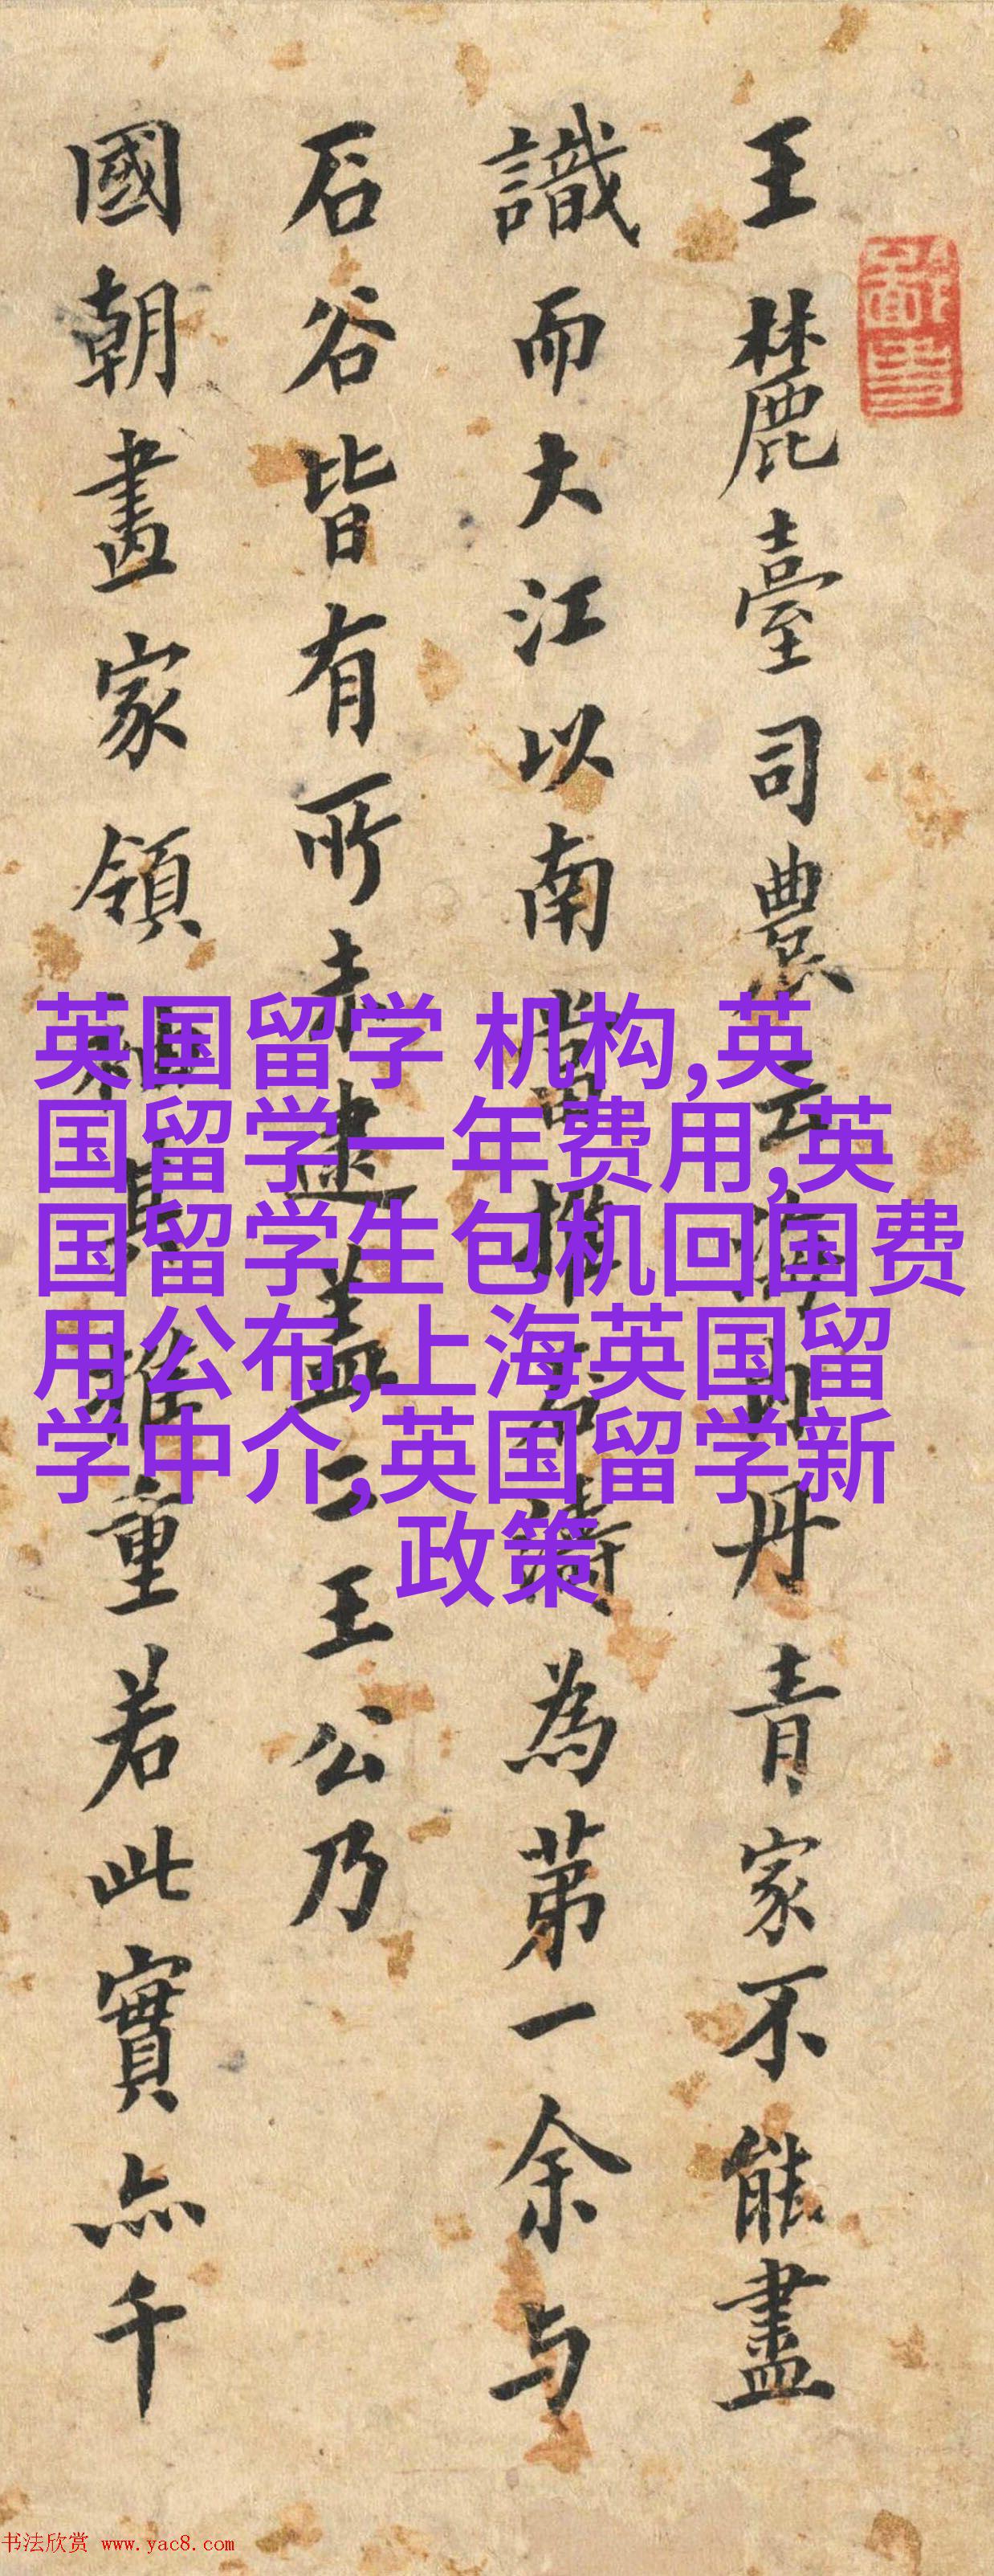 王麓臺司農云海内丹青家不能盡
識而大江以南當推石濤為第一余与
石谷皆有所未逮盖二王公乃
國朝畫家領袖其推重若此實亦千
英国留学 机构,英
国留学一年费用,英
国留学生包机回国费
用公布,上海英国留
学中介,英国留学新
政策
书法欣赏 www.yac8.com